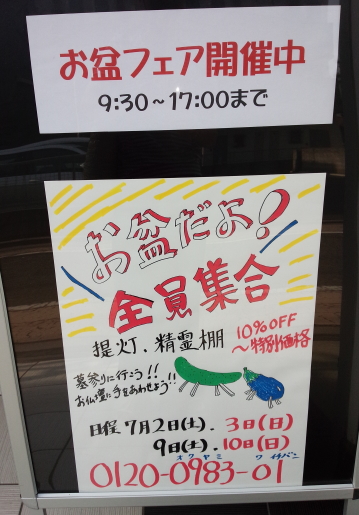 お盆フェア開催中
9:30～17:00まで
お盆だよ!
全員集合
提灯.精霊棚
10%OFF
～特別価格
墓参りに行こう!!
お仏壇に手をあわせよう!!
日程 7月2日(土).3日(日)
9日(土).10日(日)
オクヤミ ワイチバン
0120-0983-01